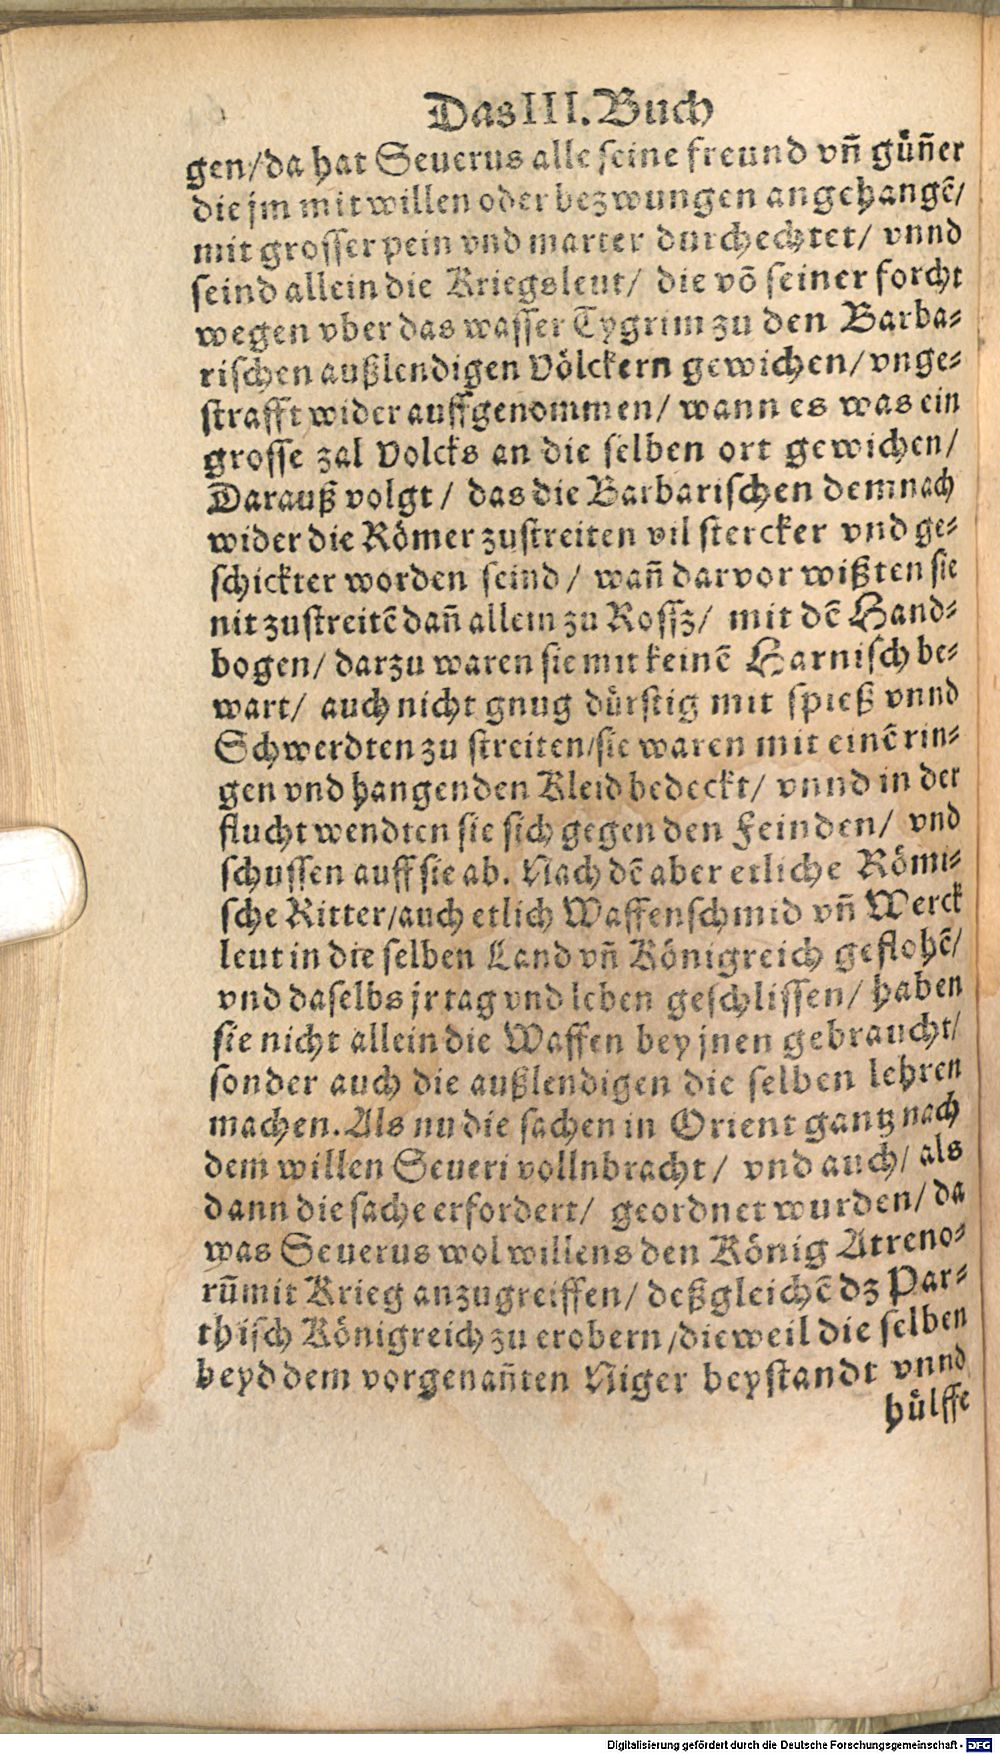 Das III. Buch
gen/ da hat Seuerus alle seine freund vñ gůñer
die jm mit willen oder bezwungen angehangẽ/
mit grosser pein vnd marter durchechtet/ vnnd
seind allein die Kriegsleut/ die võ seiner forcht
wegen vber das wasser Tygrim zu den Barba-
rischen außlendigen Völckern gewichen/ vnge-
strafft wider auffgenommen/ wann es was ein
grosse zal Volcks an die selben ort gewichen/
Darauß volgt/ das die Barbarischen demnach
wider die Römer zustreiten vil stercker vnd ge-
schickter worden seind/ wañ darvor wißten sie
nit zustreitẽ dañ allein zu Rossz/ mit dẽ Hand-
bogen/ darzu waren sie mit keinẽ Harnisch be-
wart/ auch nicht gnug dürstig mit spieß vnnd
Schwerdten zu streiten/ sie waren mit einẽ rin-
gen vnd hangenden Kleid bedeckt/ vnnd in der
flucht wendten sie sich gegen den Feinden/ vnd
schussen auff sie ab. Nach dẽ aber etliche Römi-
sche Ritter/ auch etlich Waffenschmid vñ Werck
leut in die selben Land vñ Königreich geflohẽ/
vnd daselbs jr tag vnd leben geschlissen/ haben
sie nicht allein die Waffen bey jnen gebraucht/
sonder auch die außlendigen die selben lehren
machen. Als nu die sachen in Orient gantz nach
dem willen Seueri vollnbracht/ vnd auch/ als
dann die sache erfordert/ geordnet wurden/ da
was Seuerus wol willens den König Atreno-
rũ mit Krieg anzugreiffen/ deßgleichẽ dz Par-
thisch Königreich zu erobern/ dieweil die selben
beyd dem vorgenañten Niger beystandt vnnd
hůlffe
Digitalisierung gefördert durch die Deutsche Forschungsgemeinschaft - DFG